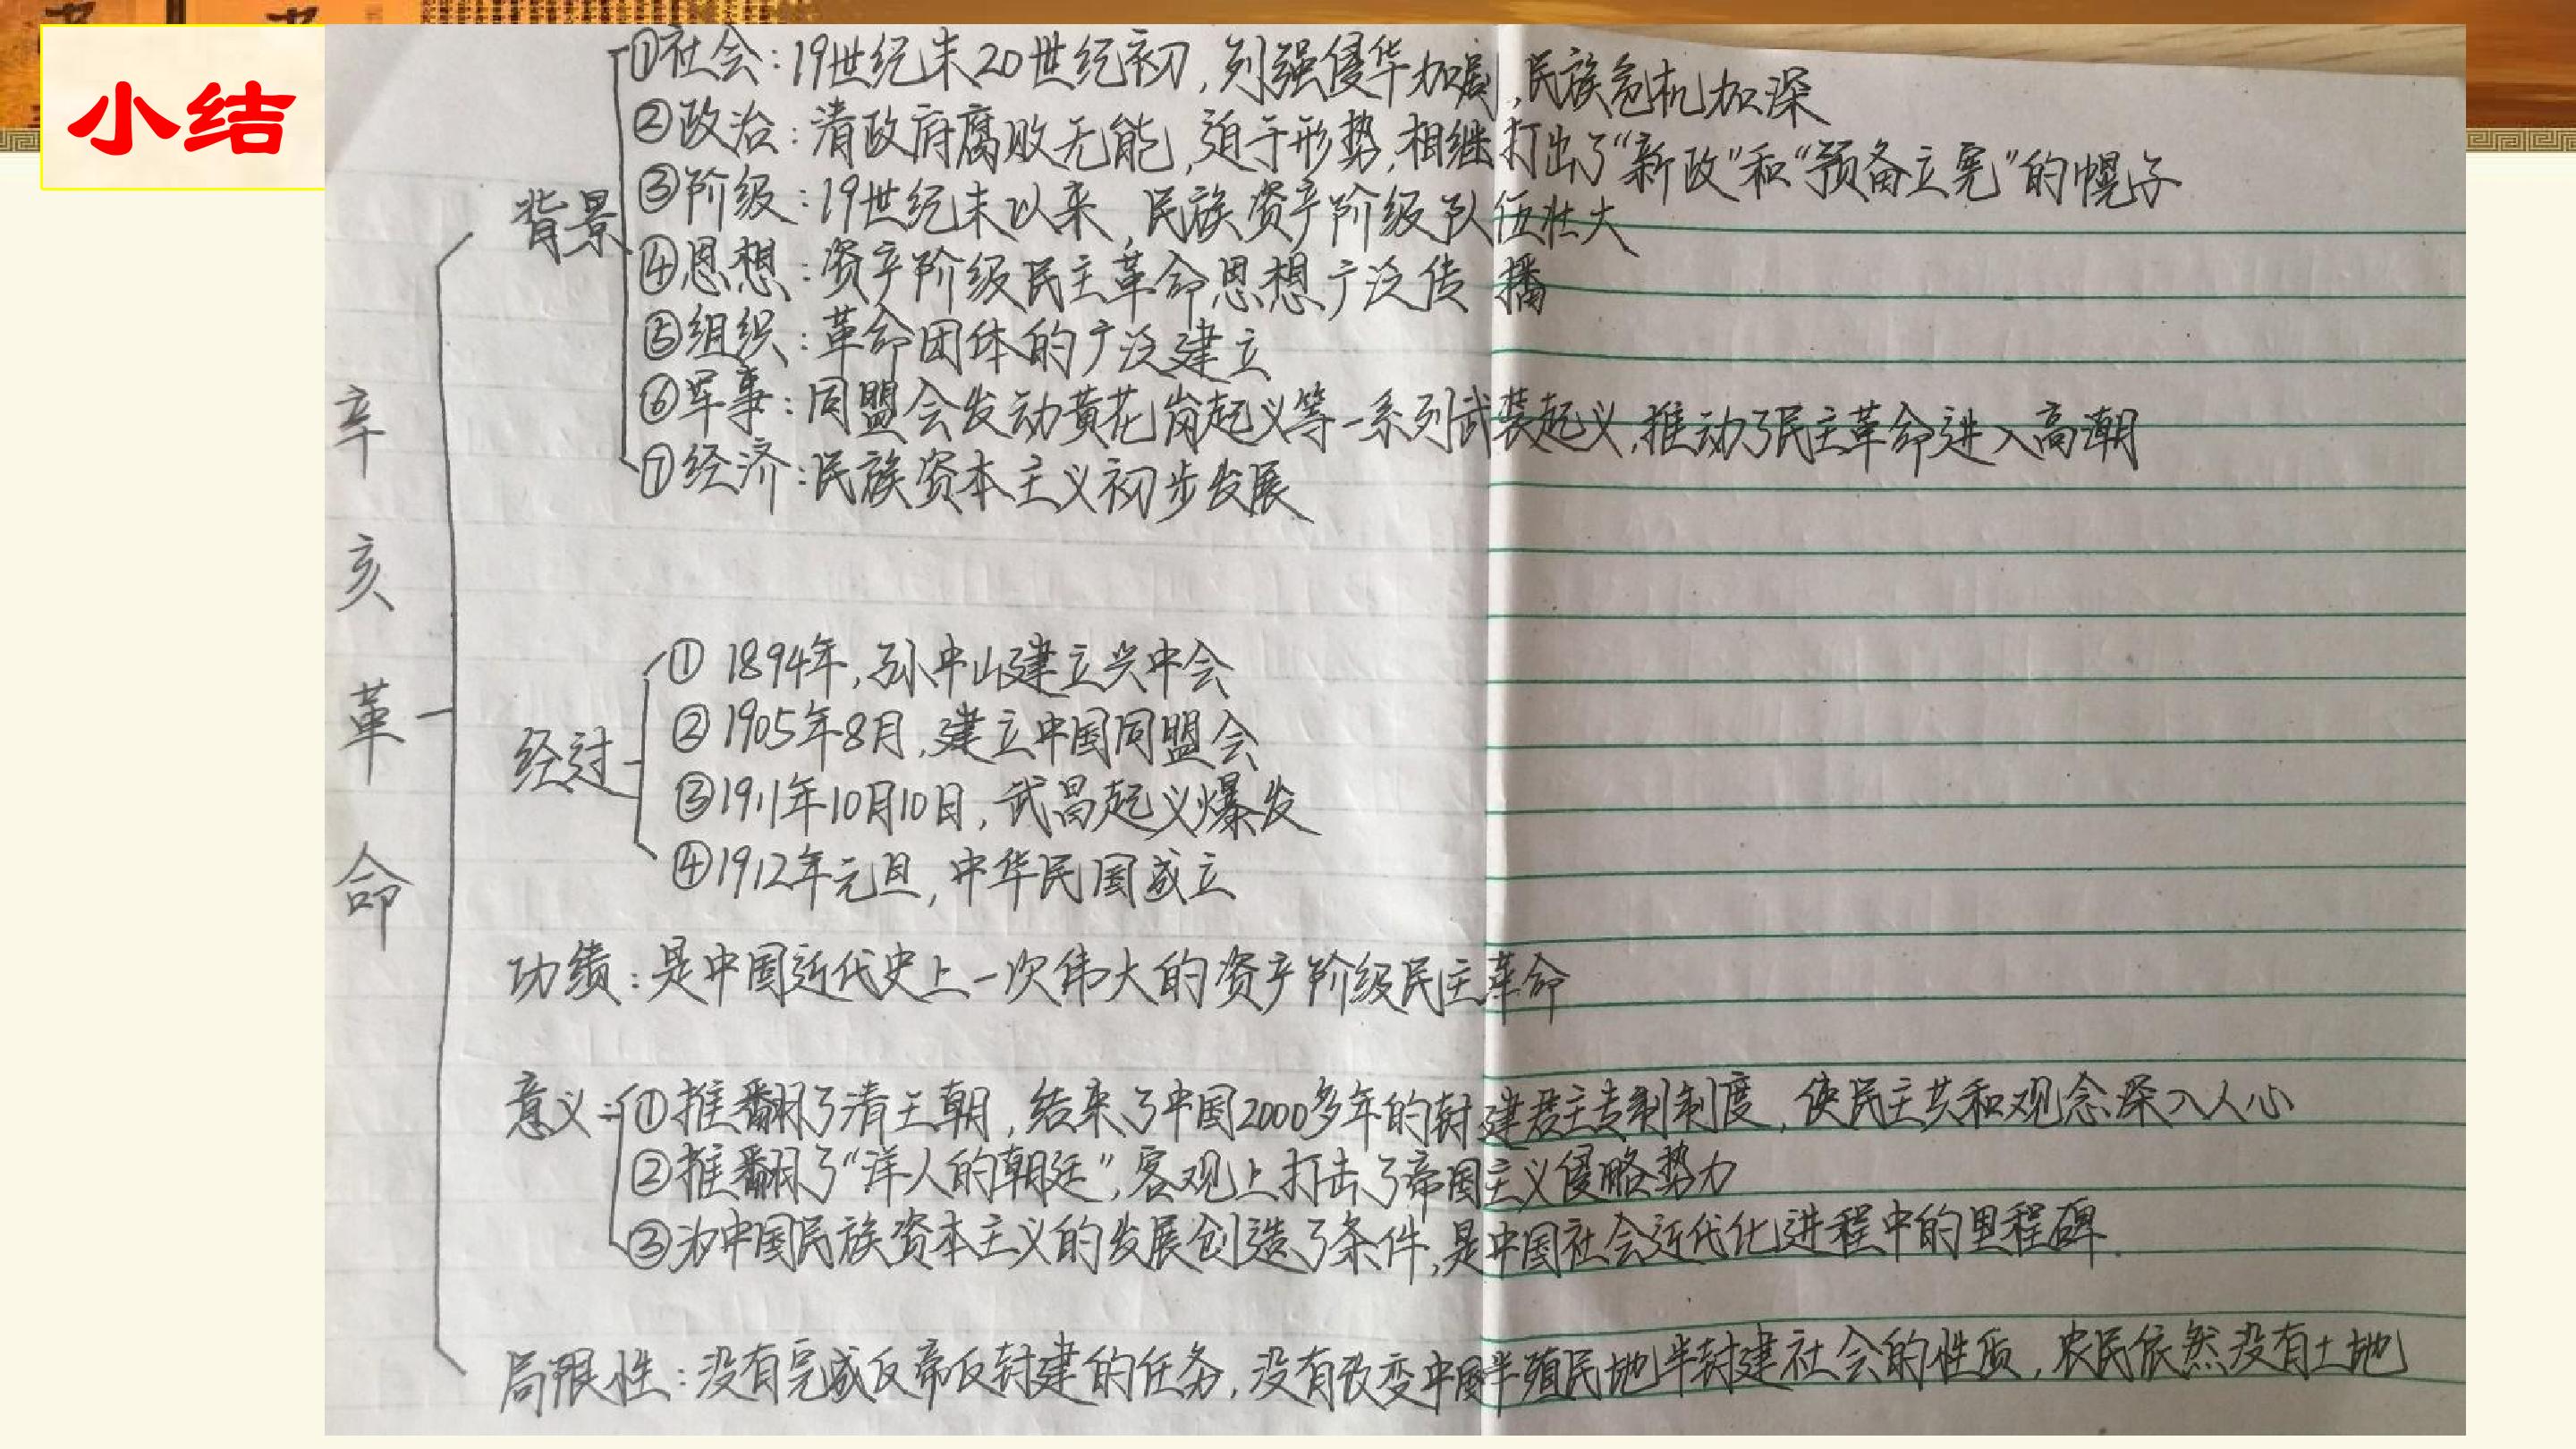 小结
①社会:19世纪末20世纪初,列强侵华加剧,民族危机加深
②政治:清政府腐败无能,迫于形势,相继打出了“新政”和“预备立宪”的幌子
背景
③阶级:19世纪末以来,民族资产阶级队伍壮大
④思想:资产阶级民主革命思想广泛传播
⑤组织:革命团体的广泛建立
⑥军事:同盟会发动黄花岗起义等一系列武装起义,推动了民主革命进入高潮
⑦经济:民族资本主义初步发展
辛亥革命
①1894年,孙中山建立兴中会
②1905年8月,建立中国同盟会
经过
③1911年10月10日,武昌起义爆发
④1912年元旦,中华民国成立
功绩:是中国近代史上一次伟大的资产阶级民主革命
意义:①推翻了清王朝,结束了中国2000多年的封建君主专制制度,使民主共和观念深入人心
②推翻了“洋人的朝廷”,客观上打击了帝国主义侵略势力
③为中国民族资本主义的发展创造了条件,是中国社会近代化进程中的里程碑.
局限性:没有完成反帝反封建的任务,没有改变中国半殖民地半封建社会的性质,农民依然没有土地